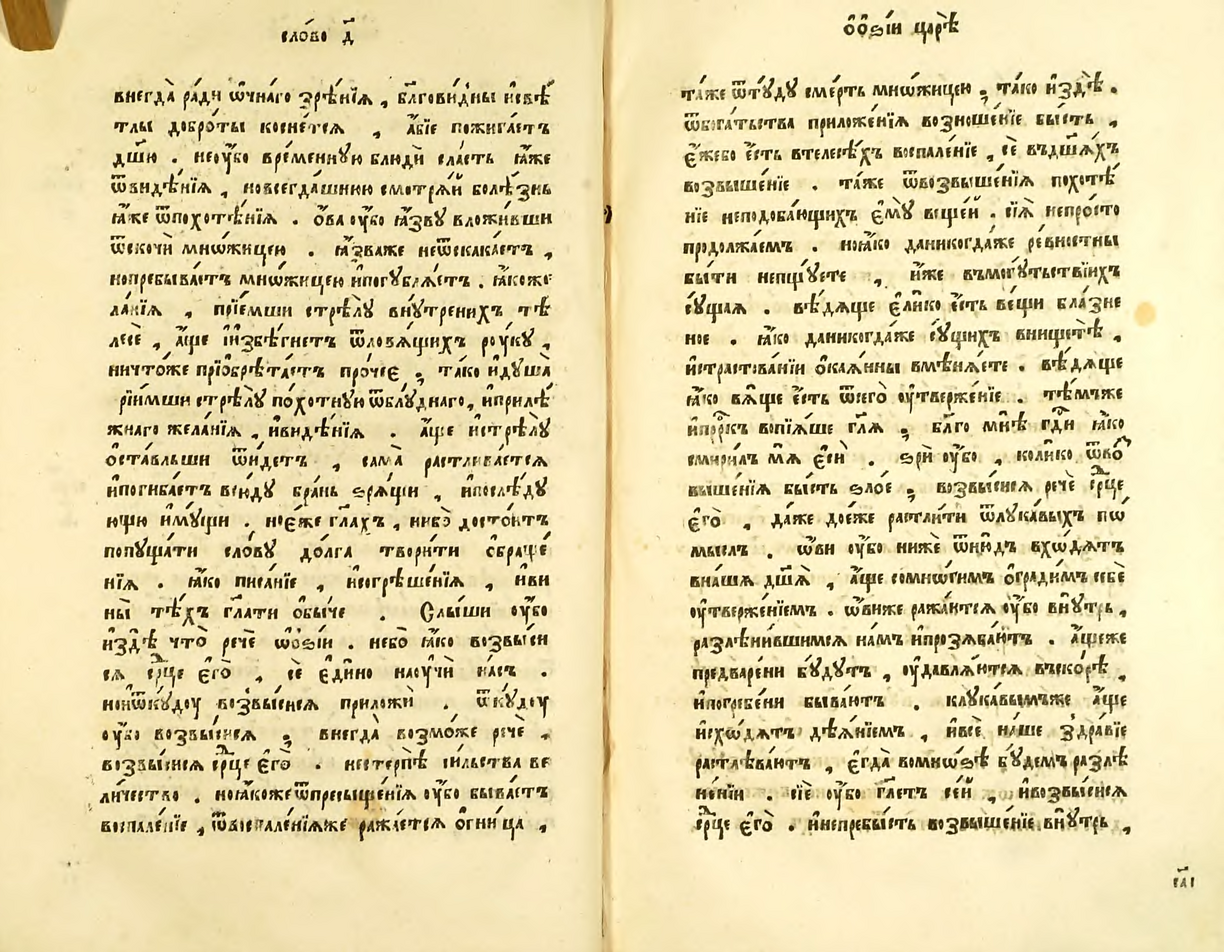 сло́во д҃
внегда̀ ра́ди ѿчнаго зрѣ́нїѧ , бл҃гови́дны исвѣ́
тлы добро́ты косне́тсѧ , а҆́бїе пожига́етъ
дш҃ю . неоу҆̀бо вре́менную блюдѝ сла́сть ꙗ҆́же
ѿви́дѣнїѧ , новсегда́шнюю смотрѧ́й болѣ́знь
ꙗ҆́же ѿпохотѣ́нїѧ . о҆́ва оу҆́бо ꙗ҆́зву вложи́вши
ѿскочѝ мно́жицею . ꙗ҆́зваже неѿскака́етъ ,
нопребыва́етъ мно́жицею ипогублѧ́етъ . ꙗ҆́коже
ла́нїѧ , прїе́мши стрѣ́лу вну́тренихъ тѣ
лесѐ , а҆́ще иизбѣ́гнетъ ѿловѧ́щихъ роу́ку ,
ничто́же прїѡбрѣта́етъ про́чее , та́ко идуша̀
рїи́мши стрѣ́лу по́хотную ѿблу́днаго , иприлѣ́
жнаго жела́нїѧ , иви́дѣнїѧ . а҆́ще истрѣ́лу
оста́вльши ѿи́детъ , сама̀ растлива́етсѧ
ипогиба́етъ всю́ду бра́нь ѕрѧ́щи , ипослѣ́ду
ющю и҆му́щи . ное́же гл҃ахъ , нибо̀ досто́итъ
попуща́ти сло́ву до́лга твори́ти ѡ҆браще́
нїѧ . ꙗ҆́ко писа́нїе , исогрѣше́нїѧ , иви
ны̀ тѣ́хъ гл҃ати обы́че . Слы́ши оу҆̀бо
издѣ̀ что̀ речѐ ѻ҆ѕі́и . небо̀ ꙗ҆́ко возвы́си
сѧ ср҃це є҆го̀ , сѐ є҆ди́но наоучѝ на́съ .
ноиѿку́доу возвы́сисѧ приложѝ . ѿку́доу
оу҆́бо возвы́сисѧ ; внегда̀ возмо́же речѐ ,
возвы́сисѧ ср҃це є҆го̀ . нестерпѣ̀ си́льства ве
ли́чество . ноꙗ҆́коже ѿпресыще́нїѧ оу҆́бо быва́етъ
воспале́нїе , ѿвоспале́нїѧже ража́етсѧ о҆гни́ца ,
ѻ҆ ѻ҆ѕі́и царѣ̀
та́же ѿту́ду сме́рть мно́жицею , та́ко издѣ̀ .
ѿбога́тьства приложе́нїѧ возноше́нїе бы́сть ,
є҆́жебо є҆́сть втелесѣ́хъ воспале́нїе , сѐ въдш҃ахъ
возвыше́нїе . та́же ѿвозвыше́нїѧ похотѣ́
нїе неподоба́ющихъ є҆му̀ веще́й . сїѧ̀ непро́сто
продолжа́емъ . ноꙗ҆́ко даникогда́же ре́внистны
бы́ти непщу́ете , и҆́же въмогу́тьствїихъ
су́щаѧ . вѣ́дѧще є҆ли́ко є҆́сть ве́щи бла́зне
ное . ꙗ҆́ко даникогда́же су́щихъ внищетѣ̀ ,
истра́стованїи о҆каѧ́нны вмѣнѧ́ете . вѣ́дѧще
ꙗ҆́ко вѧ́ще є҆́сть ѿсего̀ оу҆твержде́нїе . тѣ́мъже
ипрⷪ҇ркъ вопїѧ́ше гл҃ѧ , бл҃го мнѣ̀ гдⷭ҇и ꙗ҆́ко
смири́лъ мѧ̀ є҆сѝ . ѕрѝ оу҆́бо , коли́ко ѿво
выше́нїѧ бы́сть ѕло́е , возвы́сисѧ речѐ ср҃це
є҆го̀ , да́же досе́же растли́ти ѿлука́выхъ пѡ
мы́слъ . ѡ҆́ви оу҆́бо нижѐ ѿню́дъ вхо́дѧтъ
вна́шѧ дш҃ѧ , а҆́ще сомно́гимъ о҆гради́мъ себѐ
оу҆твержде́нїемъ . ѡ҆́виже ража́ютсѧ оу҆́бо вну́трь ,
разлѣни́вшимсѧ на́мъ ипрозѧба́ютъ . а҆́щеже
предваре́ни бу́дутъ , оу҆давлѧ́ютсѧ въско́рѣ ,
ипогребе́ни быва́ютъ . клука́вымъже а҆́ще
исхо́дѧтъ дѣѧ́нїемъ , ивсѐ на́ше здра́вїе
растлѣва́ютъ , є҆гда̀ вомно́ѕѣ бу́демъ разлѣ
не́нїи . сїѐ оу҆́бо гл҃етъ се́й , ивозвы́сисѧ
ср҃це є҆го̀ . инепребы́сть возвыше́нїе вну́трь ,